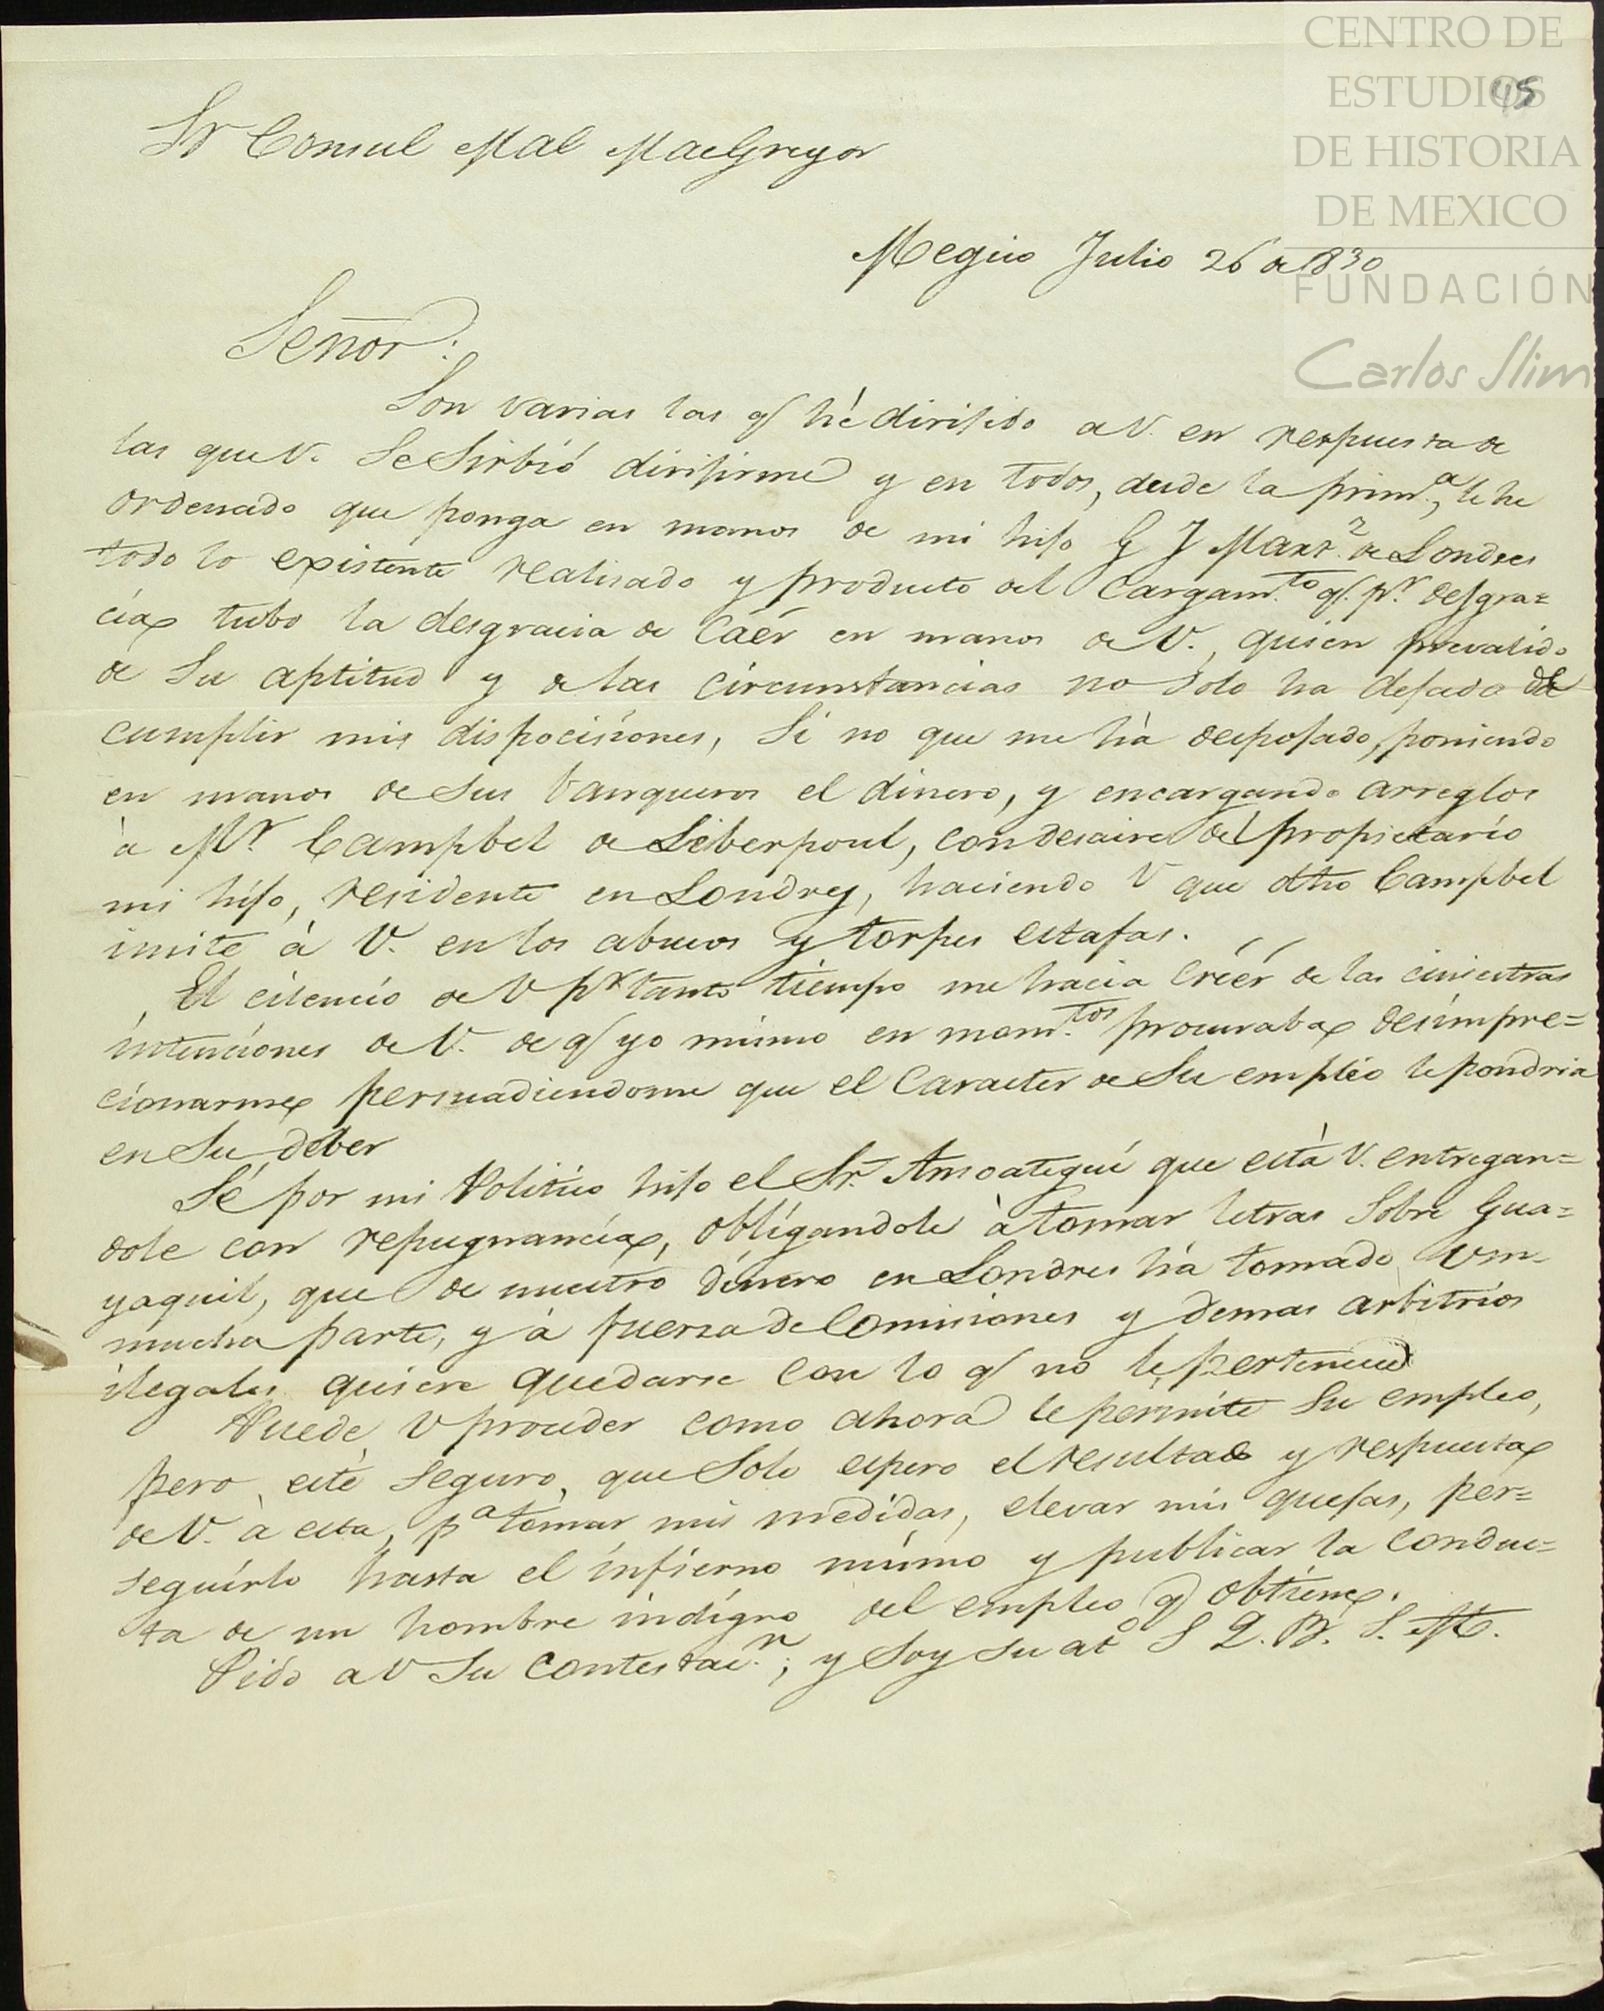 CENTRO DE
ESTUDIOS
DE HISTORIA
DE MEXICO
FUNDACIÓN
Carlos Slim
45
Sr Consul Mal MacGregor
Megico Julio 26 de 1830
Señor:
Son varias las q/ hé dirijido a V. en respuesta de
las que V. Se Sirbió dirijirme y en todos, desde la prim.ª, le he
ordenado que ponga en manos de mi hijo G J Mart.z de Londres
todo lo existente realisado y producto del Cargam.to q/. pr. desgra=
cia tubo la desgracia de Caér en manos de V., quien prevalido
de Su aptitud y de las circunstancias no Solo ha dejado de
cumplir mis dispociciones, Si no que me há despojado, poniendo
en manos de Sus banqueros el dinero, y encargando arreglos
à Mr. Campbel de Liberpoul, con desaire del propietario
mi hijo, residente en Londres, haciendo V que dho Campbel
imite à V. en los abusos y torpes estafas.
El cilencio de V pr tanto tiempo me hacia Créér de las ciniestras
intenciones de V. de q/ yo mismo en mom.tos procuraba desimpre=
cionarme persuadiendome que el Caracter de Su empléo le pondria
en Su deber
Sé por mi Politico hijo el Sr. Amoategui que està V. entregan=
dole con repugnancia, obligandole à tomar letras Sobre Gua=
yaquil, que de nuestro dinero en Londres há tomado Vm.
mucha parte, y à fuersa de Comisiones y demas arbitrios
ilegales quiere quedarse con lo q/ no le pertenece
Puede V proceder como ahora le permite Su empleo,
pero esté Seguro, que Solo espero el resultado y respuesta
de V. à esta, pª tomar mis medidas, elevar mis quejas, per=
seguirlo hasta el infierno mismo y publicar la conduc=
ta de un hombre indigno del empleo q/ obtiene.
Pido a V Su contestac.n, y soy su ato S Q. B. S. M.